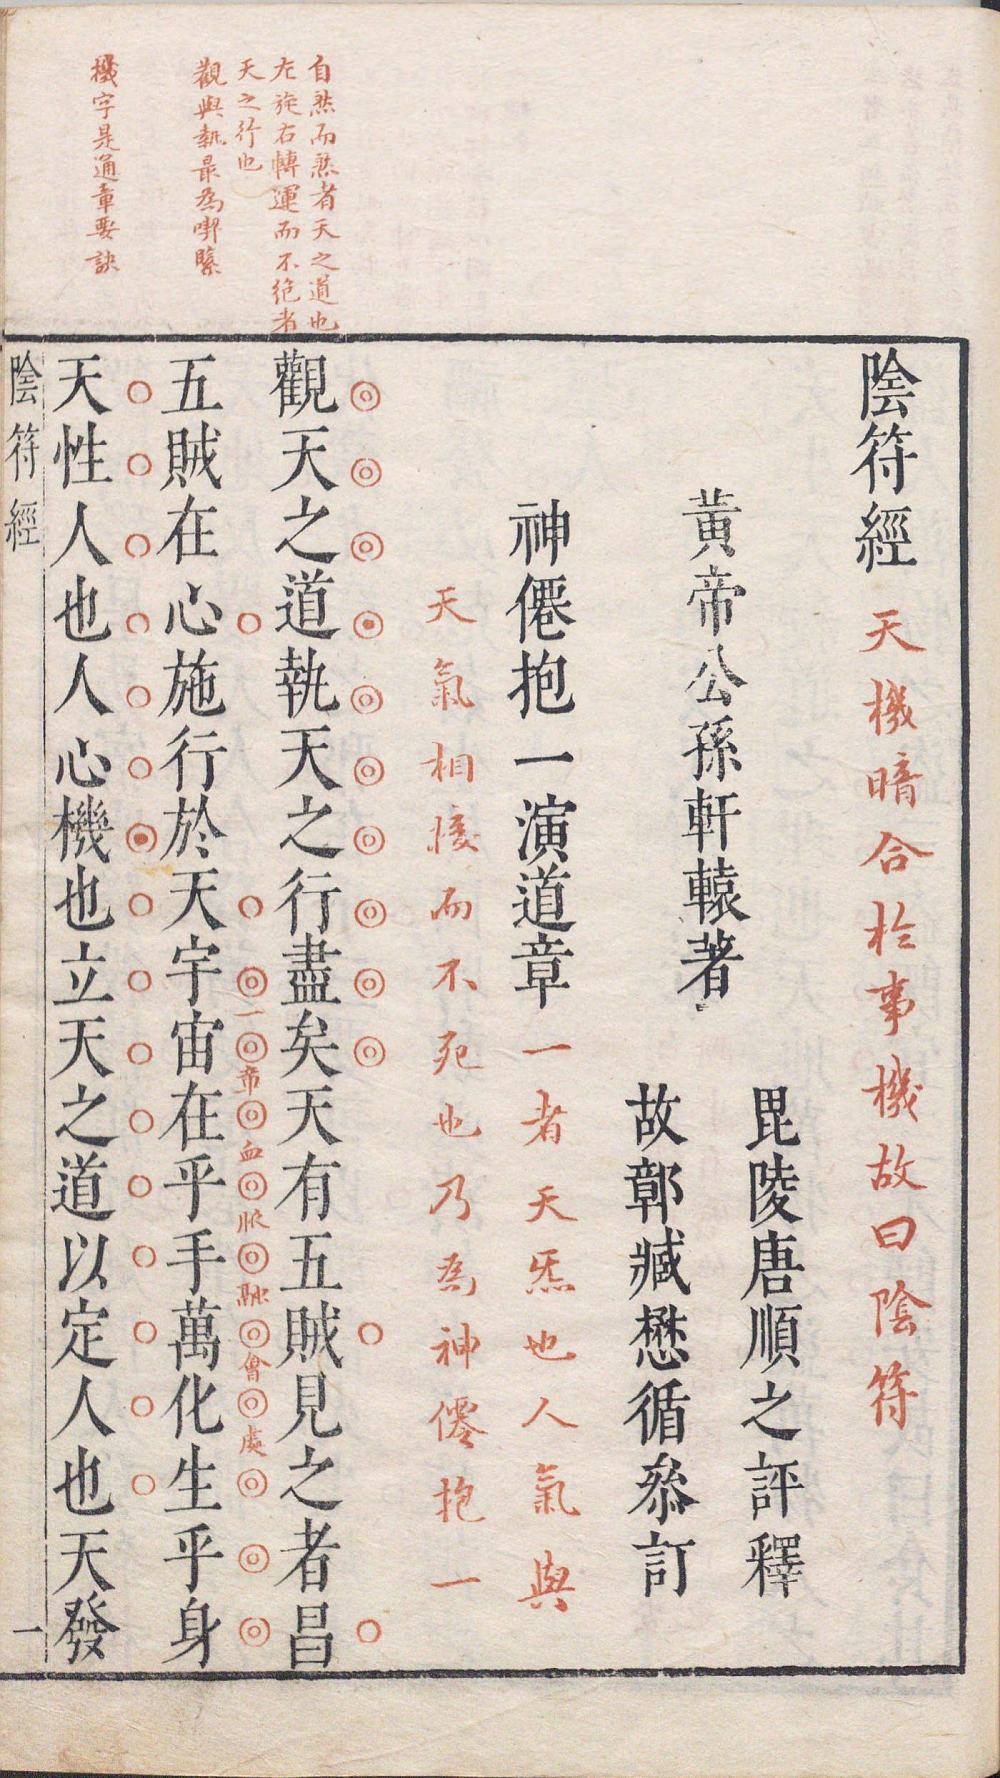 自然而然者天之道也
左旋右轉運而不絕者
天之行也
觀與執最為喫緊
機字是通章要訣
陰符經 天機暗合於事機故曰陰符
黃帝公孫軒轅著
毘陵唐順之評釋
故鄣臧懋循叅訂
神僊抱一演道章 一者天炁也人氣與
天氣相接而不死也乃為神僊抱一
觀天之道執天之行盡矣天有五賊見之者昌
五賊在心施行於天宇宙在乎手萬化生乎身
一帝會血脈融會處
天性人也人心機也立天之道以定人也天發
陰符經 一